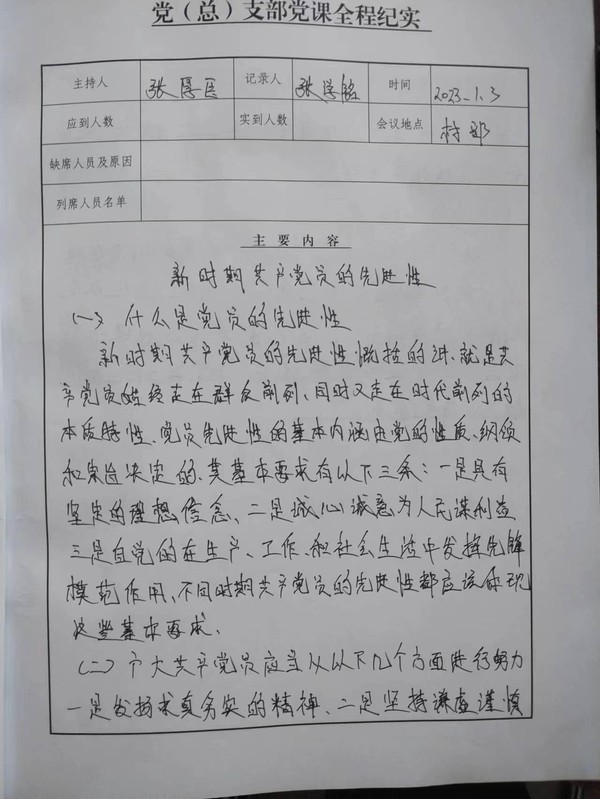 党（总）支部党课全程纪实
主持人 张厚臣 记录人 张学铭 时间 2023.1.3
应到人数 实到人数 会议地点 村部
缺席人员及原因
列席人员名单
主要内容
新时期共产党员的先进性
(一) 什么是党员的先进性
新时期共产党员的先进性概括的讲、就是共
产党员始终走在群众前列、同时又走在时代前列的
本质特性、党员先进性的基本内涵由党的性质、纲领
和宗旨决定的、其基本要求有以下三条：一是具有
坚定的理想信念、二是诚心诚意为人民谋利益
三是自觉的在生产、工作、和社会生活中发挥先锋
模范作用、不同时期共产党员的先进性都应该体现
这些基本要求.
(二) 广大共产党员应当从以下几个方面进行努力
一是发扬求真务实的精神、二是坚持谦虚谨慎